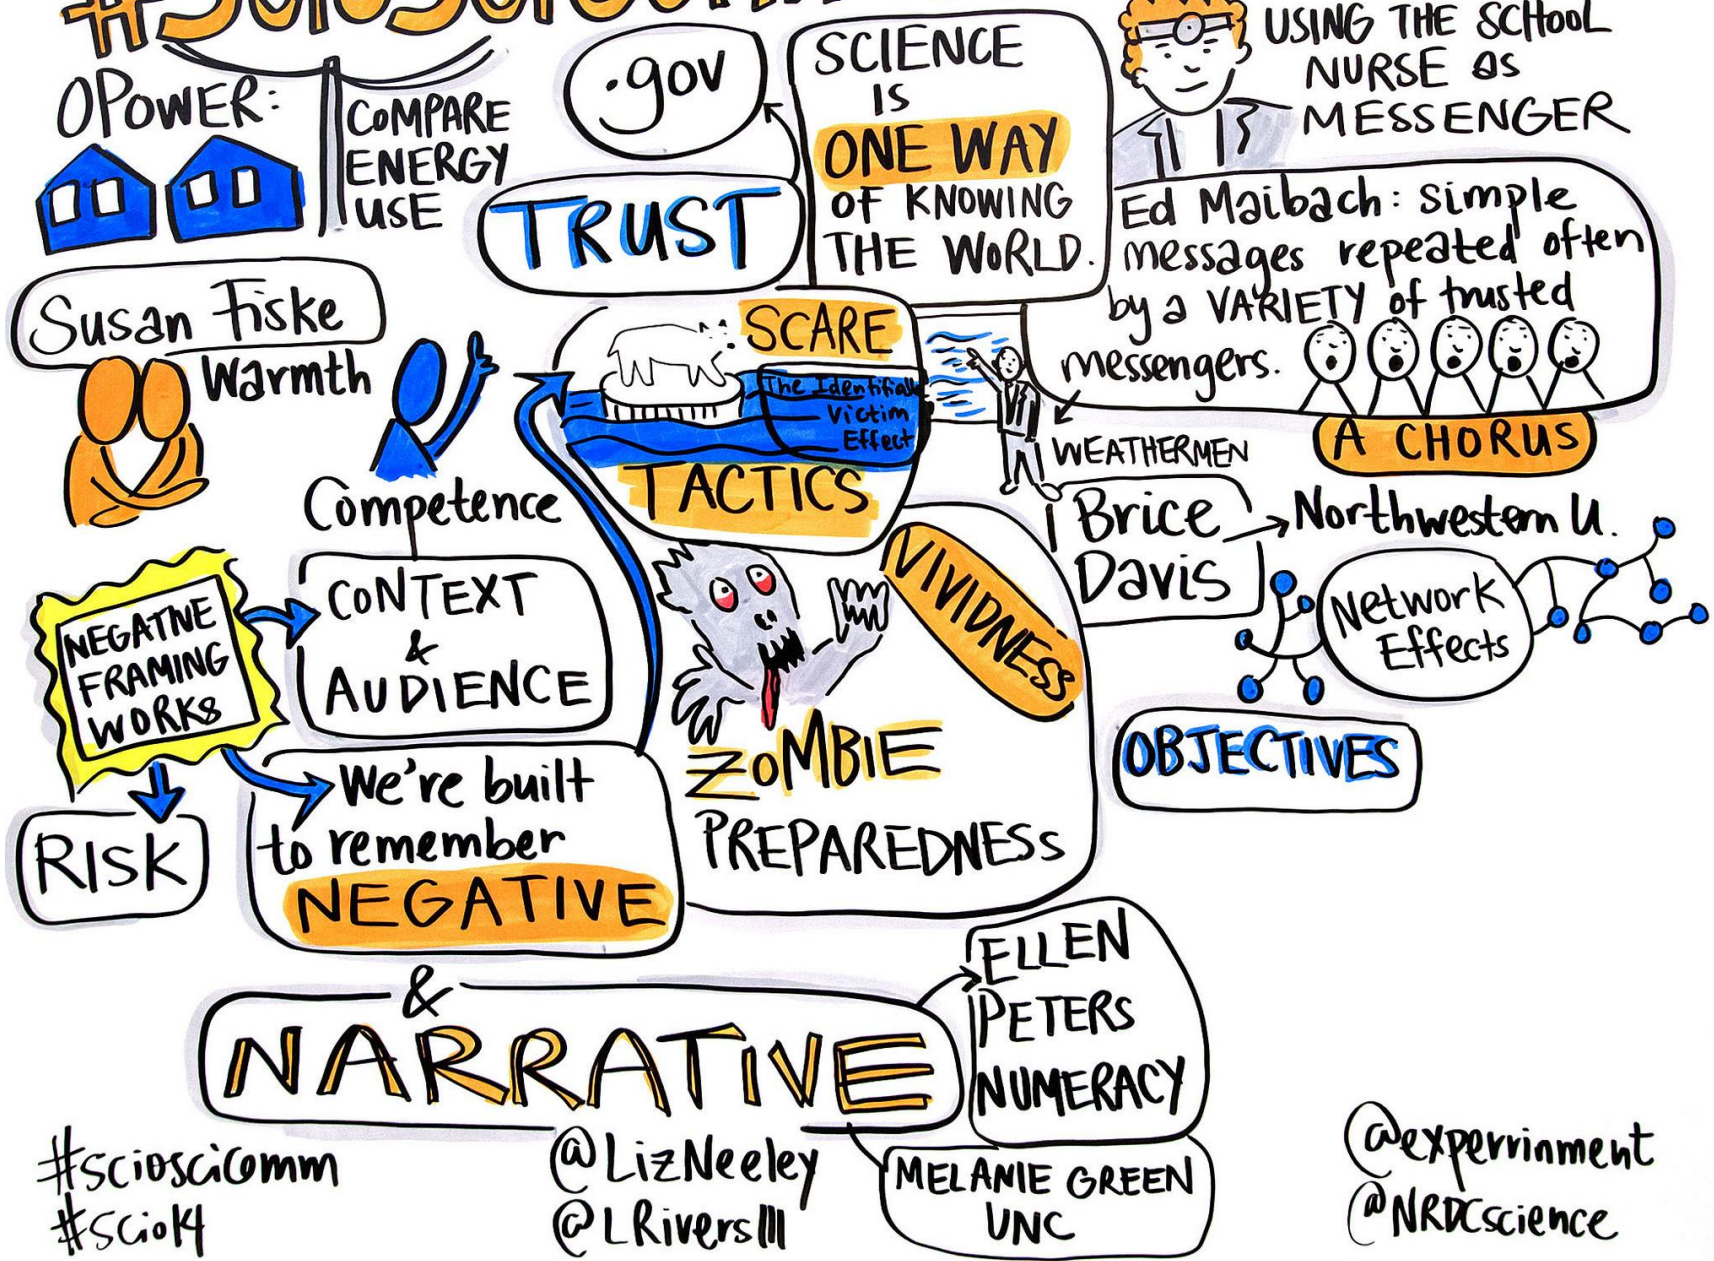 OPOWER:
COMPARE
ENERGY
USE
.gov
TRUST
SCIENCE
IS
ONE WAY
OF KNOWING
THE WORLD.
USING THE SCHOOL
NURSE as
MESSENGER
Ed Maibach: simple
messages repeated often
by a VARIETY of trusted
messengers.
A CHORUS
WEATHERMEN
Susan Fiske
Warmth
Competence
SCARE
The Identifiable
Victim
Effect
TACTICS
Brice
Davis
Northwestern U.
Network
Effects
OBJECTIVES
VIVIDNESS
ZOMBIE
PREPAREDNESS
NEGATIVE
FRAMING
WORKS
CONTEXT
&
AUDIENCE
RISK
We're built
to remember
NEGATIVE
&
NARRATIVE
ELLEN
PETERS
NUMERACY
MELANIE GREEN
UNC
#scioscicomm
#scio14
@LizNeeley
@LRiversIII
@experrinment
@NRDCscience